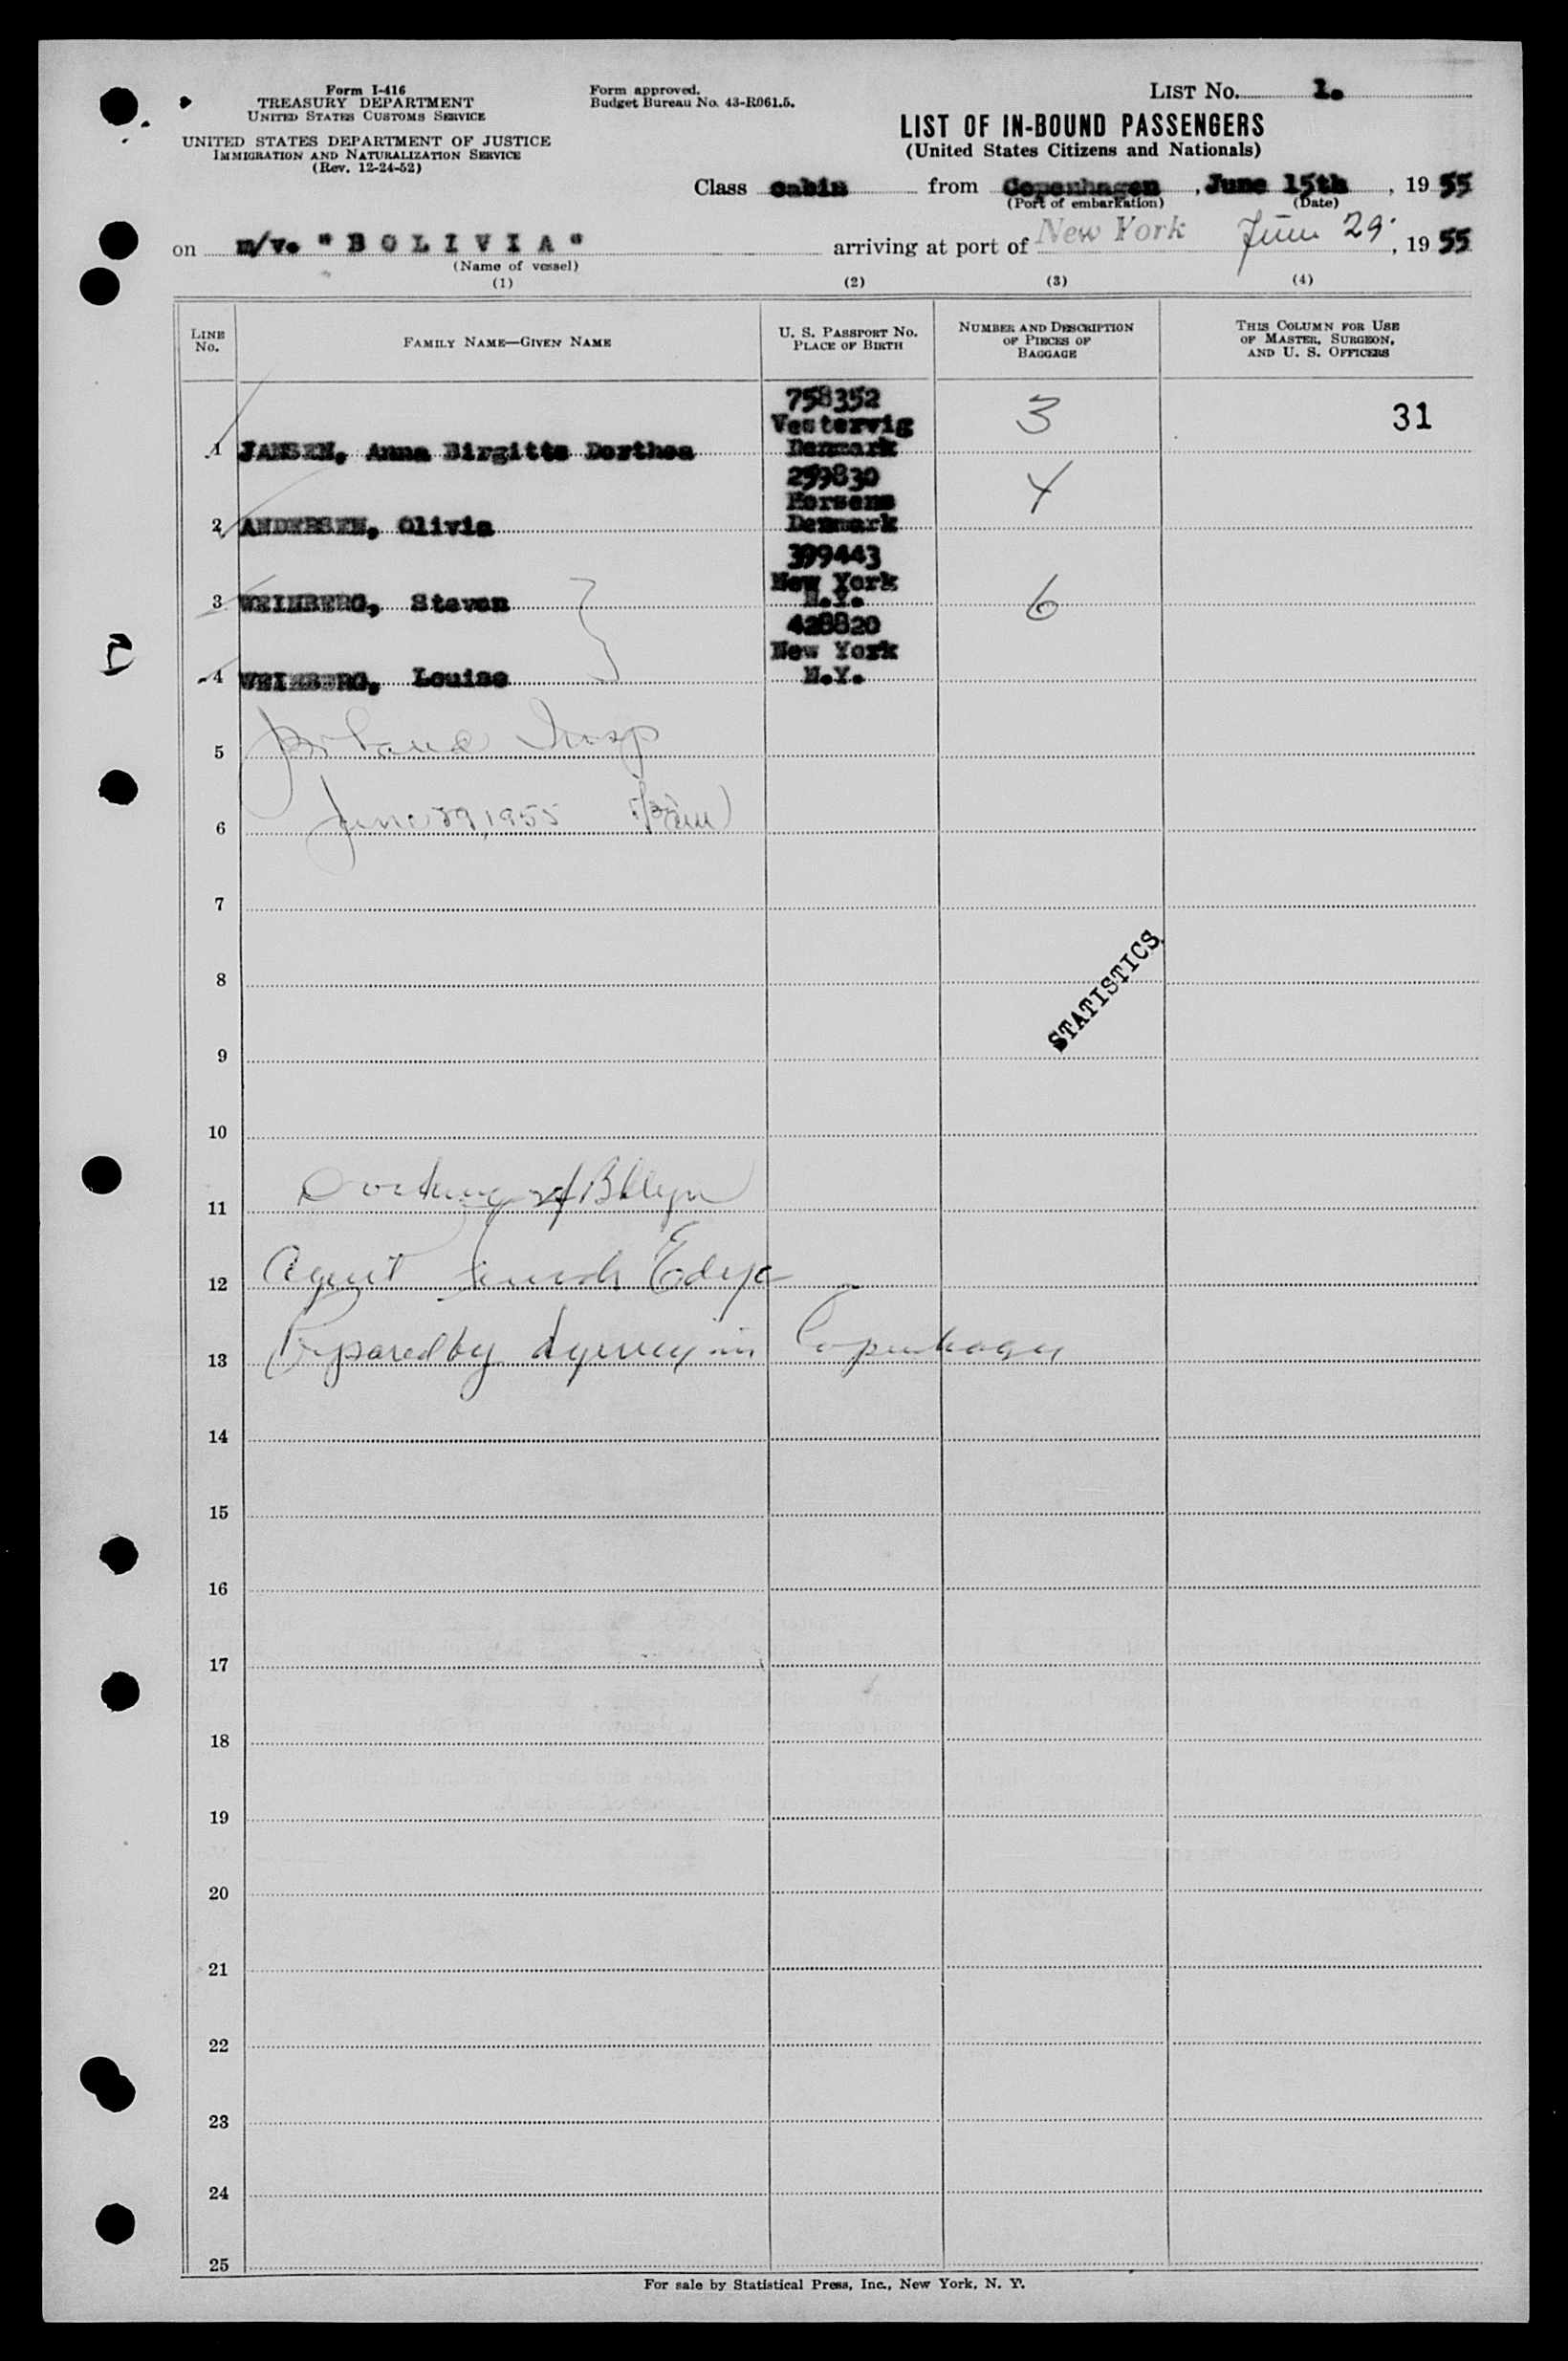 Form I-416
TREASURY DEPARTMENT
UNITED STATES CUSTOMS SERVICE
UNITED STATES DEPARTMENT OF JUSTICE
IMMIGRATION AND NATURALIZATION SERVICE
(Rev. 12-24-52)
Form approved.
Budget Bureau No. 43-R061.5.
LIST No. 1.
LIST OF IN-BOUND PASSENGERS
(United States Citizens and Nationals)
Class cabin from Copenhagen, June 15th, 1955
(Port of embarkation) (Date)
on m/v. "BOLIVIA" arriving at port of New York June 29, 1955
(Name of vessel)
(1) (2) (3) (4)
LINE No.
FAMILY NAME—GIVEN NAME
U. S. PASSPORT NO.
PLACE OF BIRTH
NUMBER AND DESCRIPTION
OF PIECES OF
BAGGAGE
THIS COLUMN FOR USE
OF MASTER, SURGEON,
AND U. S. OFFICERS
31
1 JANSEN, Anna Birgitte Dorthea
758352
Vestervig
Denmark
3
2 ANDERSEN, Olivia
259830
Horsens
Denmark
4
3 WEINBERG, Steven
399443
New York
N.Y.
6
4 WEINBERG, Louise
428820
New York
N.Y.
5 Insp
6 June 29, 1955
7
8
STATISTICS
9
10
11 Docking at Bklyn
12 Agent Funch Edye
13 Prepared by Agency in Copenhagen
14
15
16
17
18
19
20
21
22
23
24
25
For sale by Statistical Press, Inc., New York, N. Y.